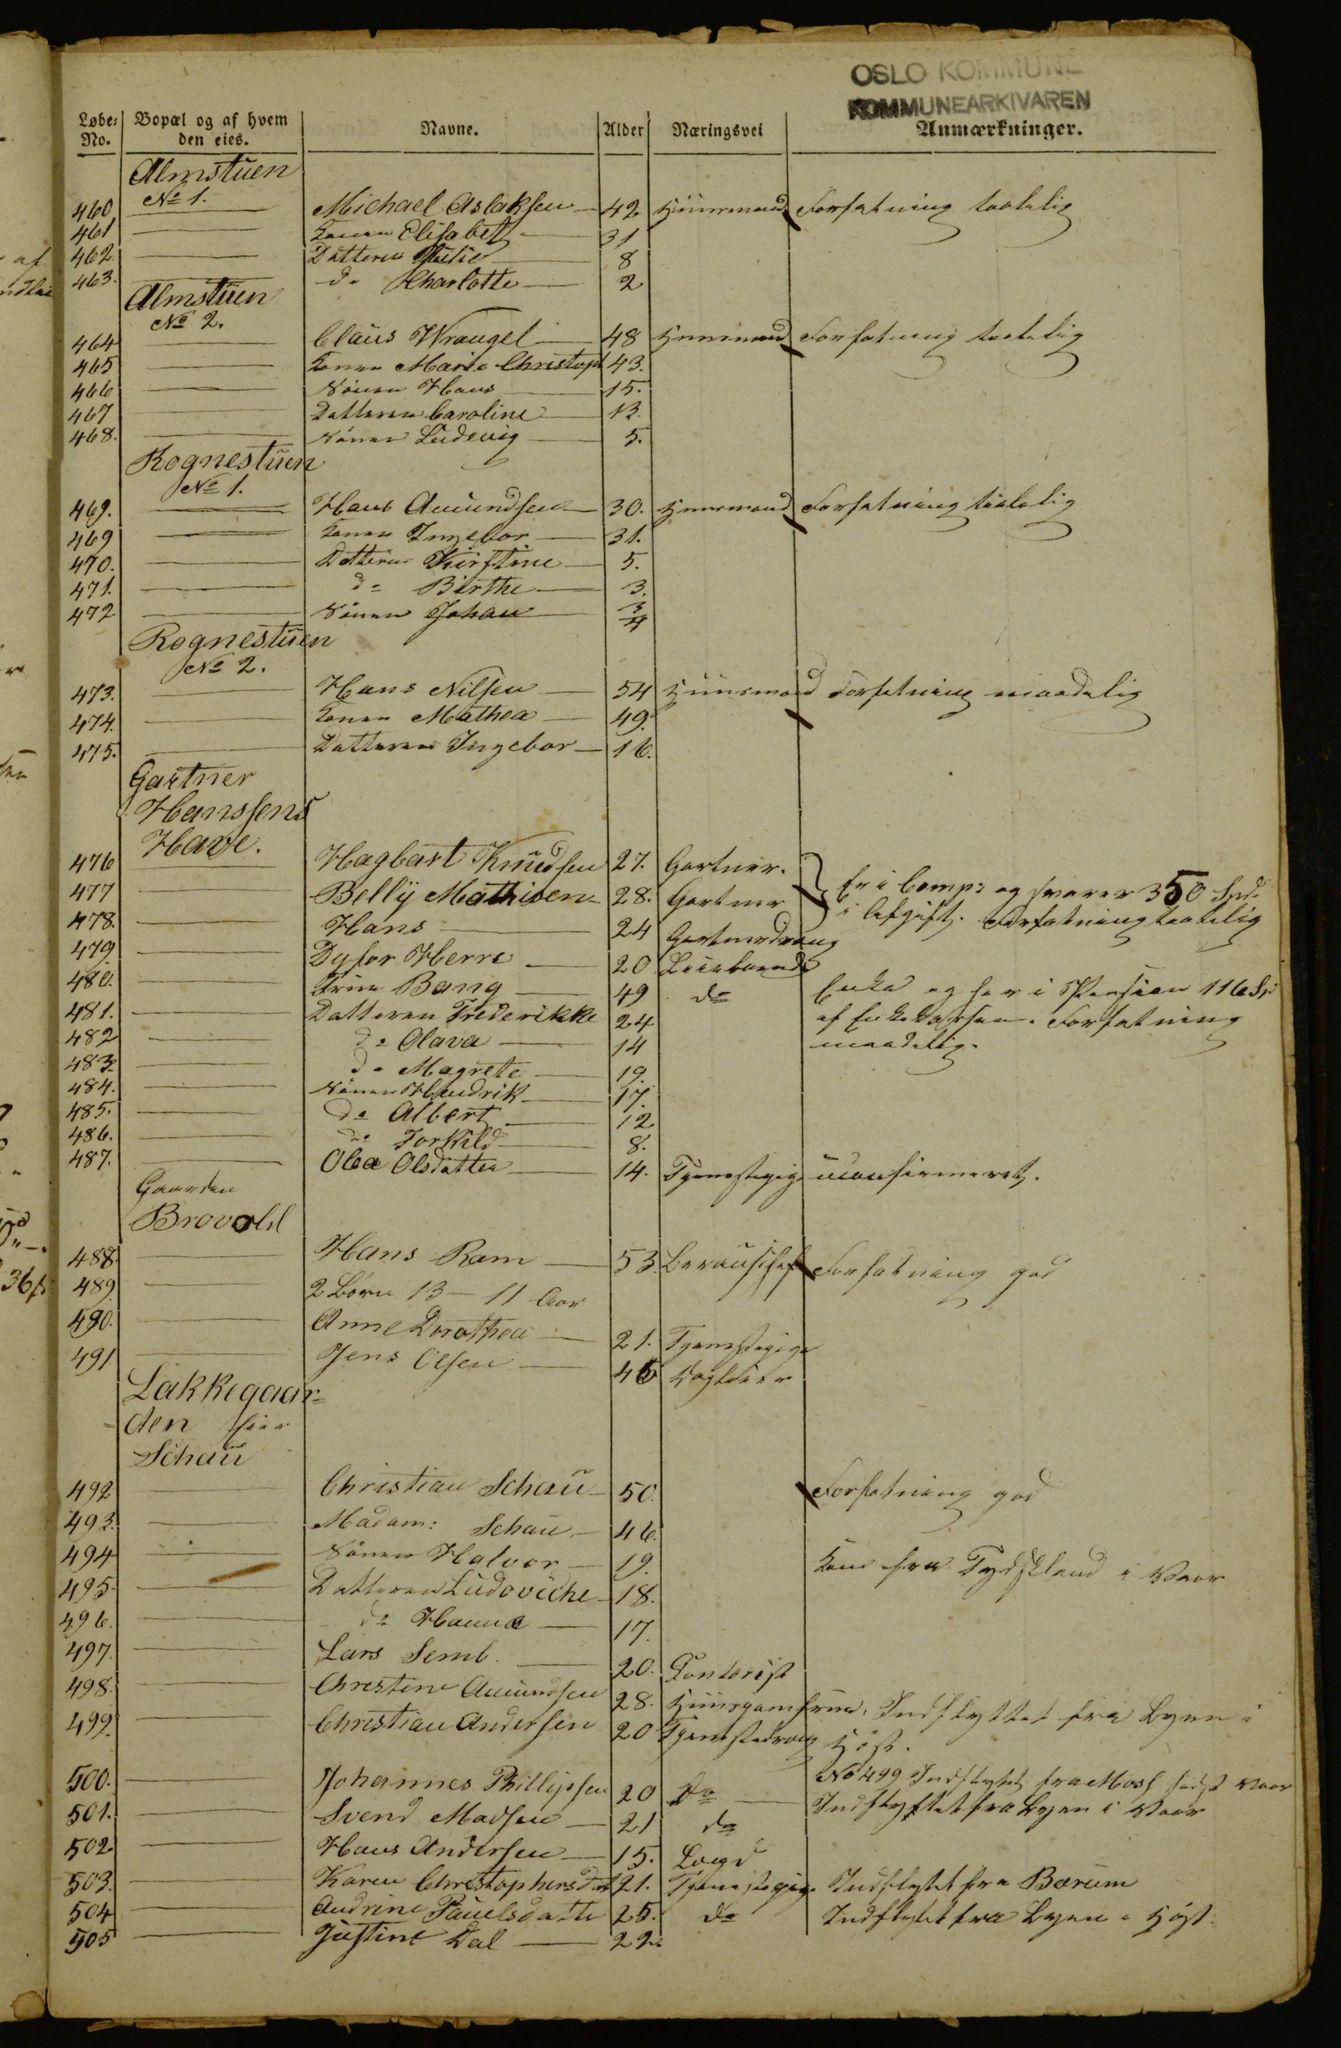 OSLO KOMMUNE
KOMMUNEARKIVAREN
Løbe-No. Bopæl og af hvem den eies. Navne. Alder Næringsvei Anmærkninger.
Almstuen
No 1.
460 Michael Aslaksen 42 Huusmand Forfatning taalelig
461 Konen Elisabet 31
462 Datteren Julie 8
463. do Charlotte 2
Almstuen
No 2.
464 Claus Wrangel 48 Huusmand Forfatning taalelig
465 Konen Marie Christoph 43.
466 Sönen Hans 15.
467 Datteren Caroline 13
468. Sönen Ludevig 5.
Rognestuen
No 1.
469. Hans Amundsen 30. Huusmand Forfatning taalelig
469 Konen Ingebor 31.
470. Datteren Kirstine 5.
471. do Birthe 3.
472 Sönen Johan 3/4
Rognestuen
No 2.
473. Hans Nilsen 54 Huusmand Forfatning maadelig
474. Konen Mathea 49.
475. Datteren Ingebor 16.
Gartner
Hanssens
Have.
476 Hagbart Knudsen 27. Gartner.
477 Belly Mathisen 28. Gartner Er i Comp: og svarer 350 Spd.
478. Hans 24 Gartnerdreng i Afgift. Forfatning taalelig
479. Herre 20 Leieboende
480. Bang 49 do Enke og har i Pension 116 Sp:
481. Datteren Frederikke 24 af Enkekassen. Forfatning
482 do Olava 14 maadelig.
483. do Magrete 19.
484. Sönen Hendrik 17.
485. do Albert 12
486. do Torkild 8.
487. Olea Olsdatter 14. Tjenestepige uconfirmeret.
Gaarden
Brovold
488. Hans Ram 53. Forfatning god
489. 2 Börn 13 - 11 Aar
490. Anne Dorothea 21. Tjenestepige
491 Jens Olsen 46
Lakkegaar-
den
Schau
492 Christian Schau 50. Forfatning god
493. Madam: Schau 46.
494 Sönen Halvor 19. Kom fra Tydskland i Vaar
495. Datteren Ludoviche 18.
496. do Hanna 17.
497. Lars Semb. 20. Contorist
498. Christine Amundsen 28. Huusjomfrue. Indflyttet fra Byen i
499. Christian Andersen 20 Tjenestedreng Höst.
No 499 Indflyttet fra Moss sidst Vaar
500. Johannes Phillipsen 20 do Indflyttet fra Byen i Vaar
501. Svend Madsen 21 do
502. Hans Andersen 15.
503. Karen Christophersdat 21. Tjenestepige Indflyttet fra Bærum
504 Andrine Paulsdatte 25. do Indflyttet fra Byen i Höst.
505 Justine Dal 22.